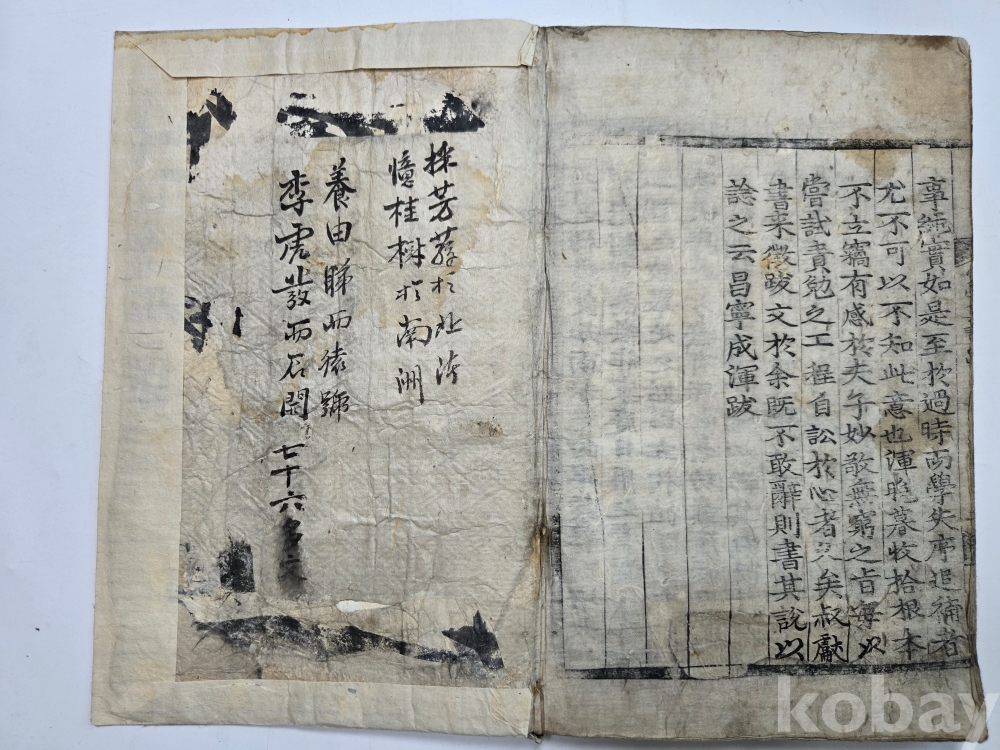 事統實如是至於過時而學失序追補者
尤不可以不知此意也渾晩暮收拾根本
不立竊有感於夫子妙敬無窮之旨每以
嘗試責勉之工程自訟於心者久矣叔獻
書来徵跋文於余旣不敢辭則書其說以
諗之云昌寧成渾跋
採芳蓀於北渚
憶桂樹於南洲
養由睇而猿號
李虎發而石開 七十六
kobay